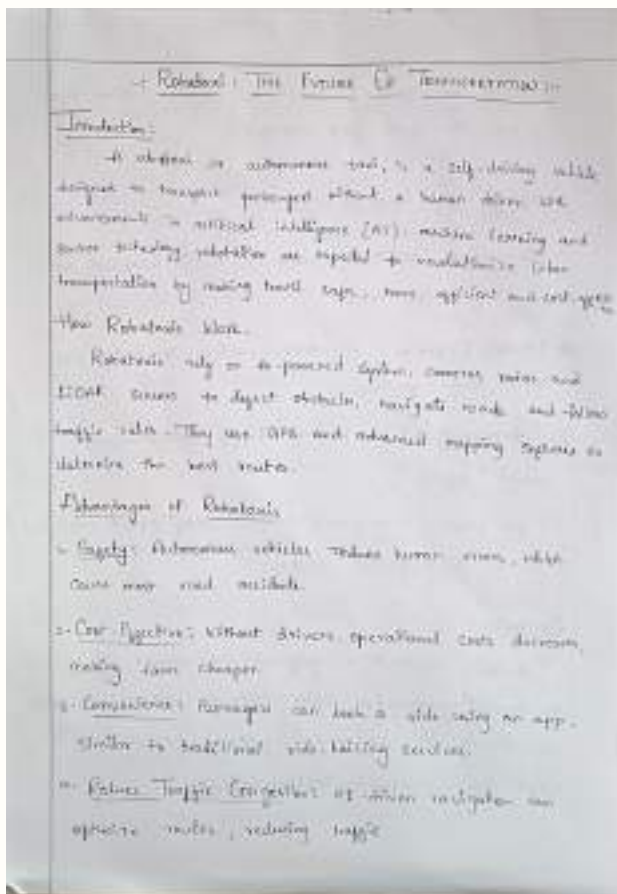 Robotaxi: The Future Of Transportation
Introduction:
A robotaxi or autonomous taxi, is a self-driving vehicle
designed to transport passengers without a human driver with
advancements in artificial intelligence (AI) machine learning and
sensor technology robotaxies are expected to revolutionize urban
transportation by making travel safer, more efficient and cost-effective
How Robotaxis Work.
Robotaxis rely on AI-powered system, cameras radar and
LiDAR sensors to detect obstacles, navigate roads and follow
traffic rules. They use GPS and advanced mapping systems to
determine the best routes.
Advantages of Robotaxis
Safety: Autonomous vehicles reduce human errors, which
cause most road accidents.
2. Cost Effective: Without drivers, operational costs decrease,
making fares cheaper.
3. Convenience: Passengers can book a ride using an app,
similar to traditional ride-hailing services.
Reduce Traffic Congestion: AI driven navigation can
optimize routes, reducing traffic